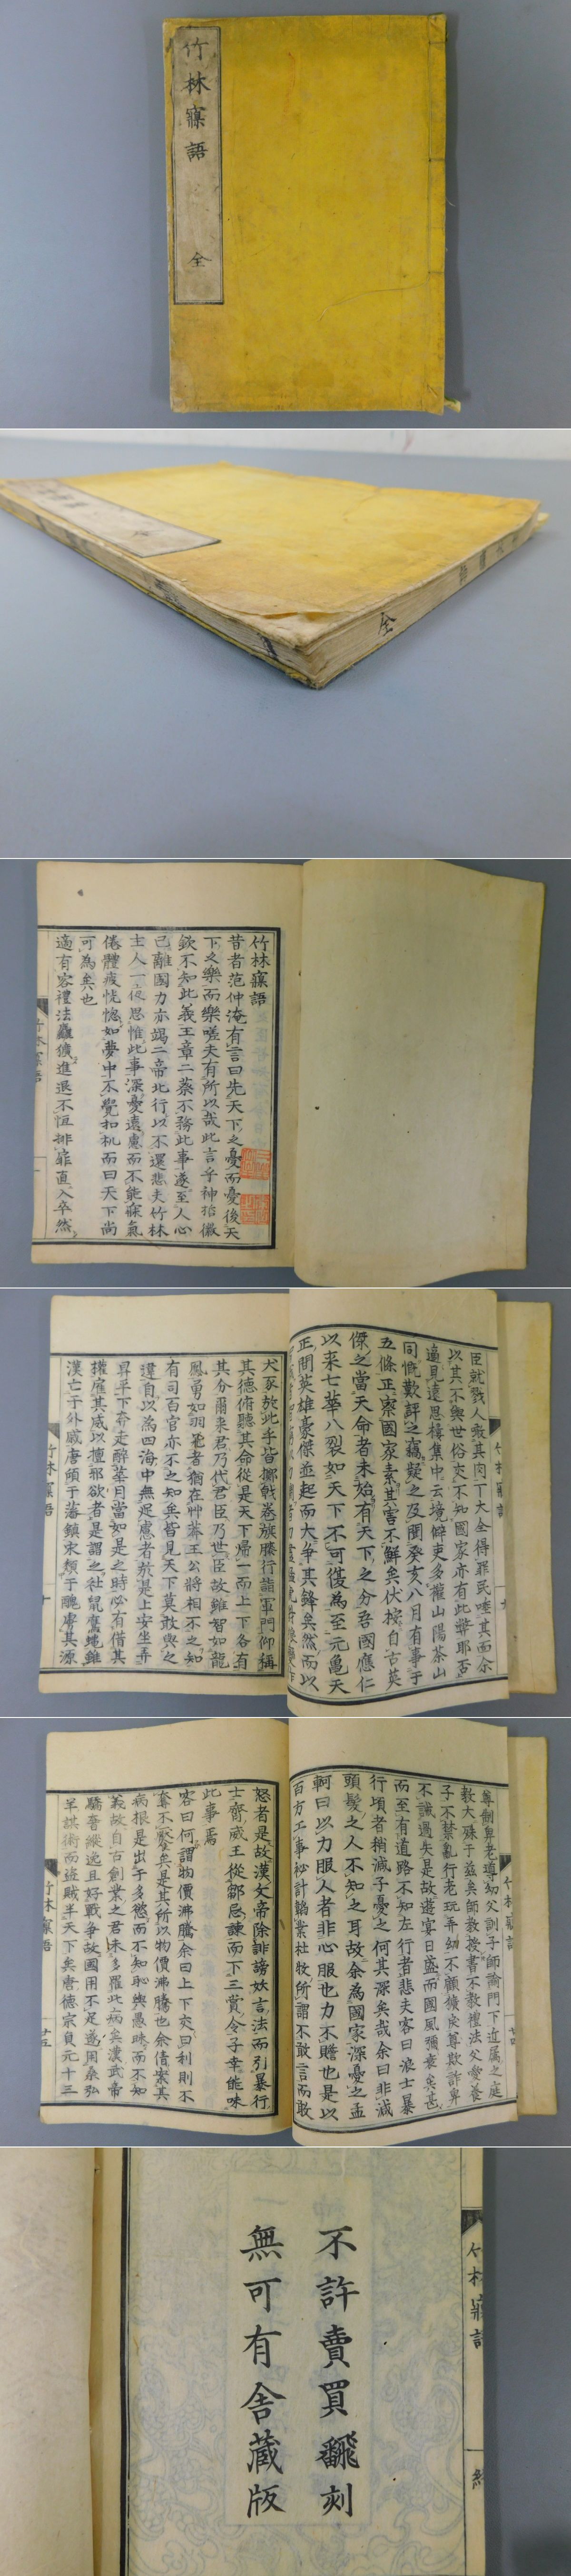 竹林寱語
全
全
竹林寱語
昔者范仲淹有言曰先天下之憂而憂後天
下之樂而樂嗟夫有所以哉此言乎神怡徽
欽不知此義王章二蔡不務此事遂至人心
已離國力亦竭二帝北行以不還悲夫竹林
士人一夜思惟此事深憂遠慮而不能寐氣
倦體疲恍惚如夢中不覺扣机而曰天下尚
可為矣也
適有客禮法麤獷進退不恒排扉直入卒然
竹林寱語
臣就戮人噉其肉丁大全得罪民唾其面余
以其不與世俗交不知國家亦有此弊耶否
適見遠思樓集中云境僻吏多權山陽茶山
同慨歎評之竊疑之及聞癸亥八月有事于
五條正察國家素其害不鮮矣伏按自古英
傑之當天命者未始有天下之分吾國應仁
以来七華八裂如天下不可復為至元亀天
正間英雄豪傑並起而大争其鋒矣然而以
犬豕於此乎皆擲戟卷旗膝行詣軍門仰稱
其德俯聽其命從是天下歸一而上下各有
其分爾来君乃代君臣乃世臣故雖智如龍
鳳勇如羽毛者猶在艸莽王公將相不之知
有司百官亦不之知矣皆見天下莫敢與之
違自以為四海中無逞慮者於是上安坐弄
昇平下奔走醉華月當如是之時必有借其
權雇其威以擅邪欲者是謂之社鼠鷹鸇雖
漢亡于外戚唐傾于藩鎮宋頽于醜虜其源
竹林寱語
十
尊制卑老導幼父訓子師諭門下近屬之庭
教大殊于茲矣師教授書不教禮法父愛養
子不禁亂行老玩弄幼不顧獷戾尊欺詐卑
不識過失是故遊宴日盛而國風彌衰矣甚
而至有道路不知左行者悲夫客曰浪士暴
行頃者稍減子憂之何其深矣哉余曰非減
頭髮之人不知之耳故余為國家深憂之孟
軻曰以力服人者非心服也力不贍也是以
百方工事秘計韜業社牧所謂不敢言而敢
怒者是故漢文帝除誹謗妖言法而引暴行
士齊威王從鄒忌諫而下三賞令子幸能味
此事焉
客曰何謂物價沸騰余曰上下交曰利則不
奪不饜矣是其所以物價沸騰也余倩案其
病根是出于多慾而不知恥與愚昧而不知
義故自古創業之君未多罹此病矣漢武帝
驕奢縱逸且好戰争故國用不足遂用桑弘
羊謀術而盜賊半天下矣唐德宗貞元十三
竹林寱語
廿五
不許賣買飜刻
無可有舎蔵版
竹林寱語